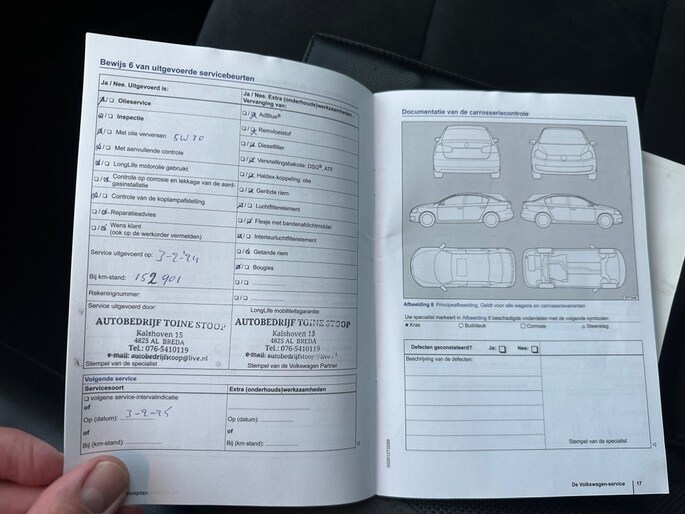 Bewijs 6 van uitgevoerde servicebeurten
Ja / Nee. Uitgevoerd is:
Olieservice
Inspectie
Met olie verversen 5W30
Met aanvullende controle
LongLife motorolie gebruikt
Controle op corrosie en lekkage van de aard-
gasinstallatie
Controle van de koplampafstelling
Reparatieadvies
Wens klant
(ook op de werkorder vermelden)
Service uitgevoerd op: 3-2-24
Bij km-stand: 152901
Rekeningnummer:
Service uitgevoerd door:
AUTOBEDRIJF TOINE STOOP
Kalshoven 15
4825 AL BREDA
Tel.: 076-5410119
e-mail: autobedrijfstoop@live.nl
Stempel van de specialist
Ja / Nee. Extra (onderhouds)werkzaamheden.
Vervanging van:
AdBlue®
Remvloeistof
Dieselfilter
Versnellingsbakolie: DSG®, ATF
Haldex-koppeling: olie
Geribde riem
Luchtfilterelement
Flesje met bandenafdichtmiddel
Interieurluchtfilterelement
Getande riem
Bougies
LongLife mobiliteitsgarantie:
AUTOBEDRIJF TOINE STOOP
Kalshoven 15
4825 AL BREDA
Tel.: 076-5410119
e-mail: autobedrijfstoop@live.nl
Stempel van de Volkswagen Partner
Volgende service
Servicesoort
volgens service-intervalindicatie
of
Op (datum): 3-2-25
of
Bij (km-stand):
Extra (onderhouds)werkzaamheden
of
Op (datum):
of
Bij (km-stand):
Documentatie van de carrosseriecontrole
Afbeelding 8 Principeafbeelding. Geldt voor alle wagens en carrosserievarianten
Uw specialist markeert in Afbeelding 8 beschadigde onderdelen met de volgende symbolen:
Kras Buil/deuk Corrosie Steenslag
Defecten geconstateerd? Ja: Nee:
Beschrijving van de defecten:
Stempel van de specialist
De Volkswagen-service 17